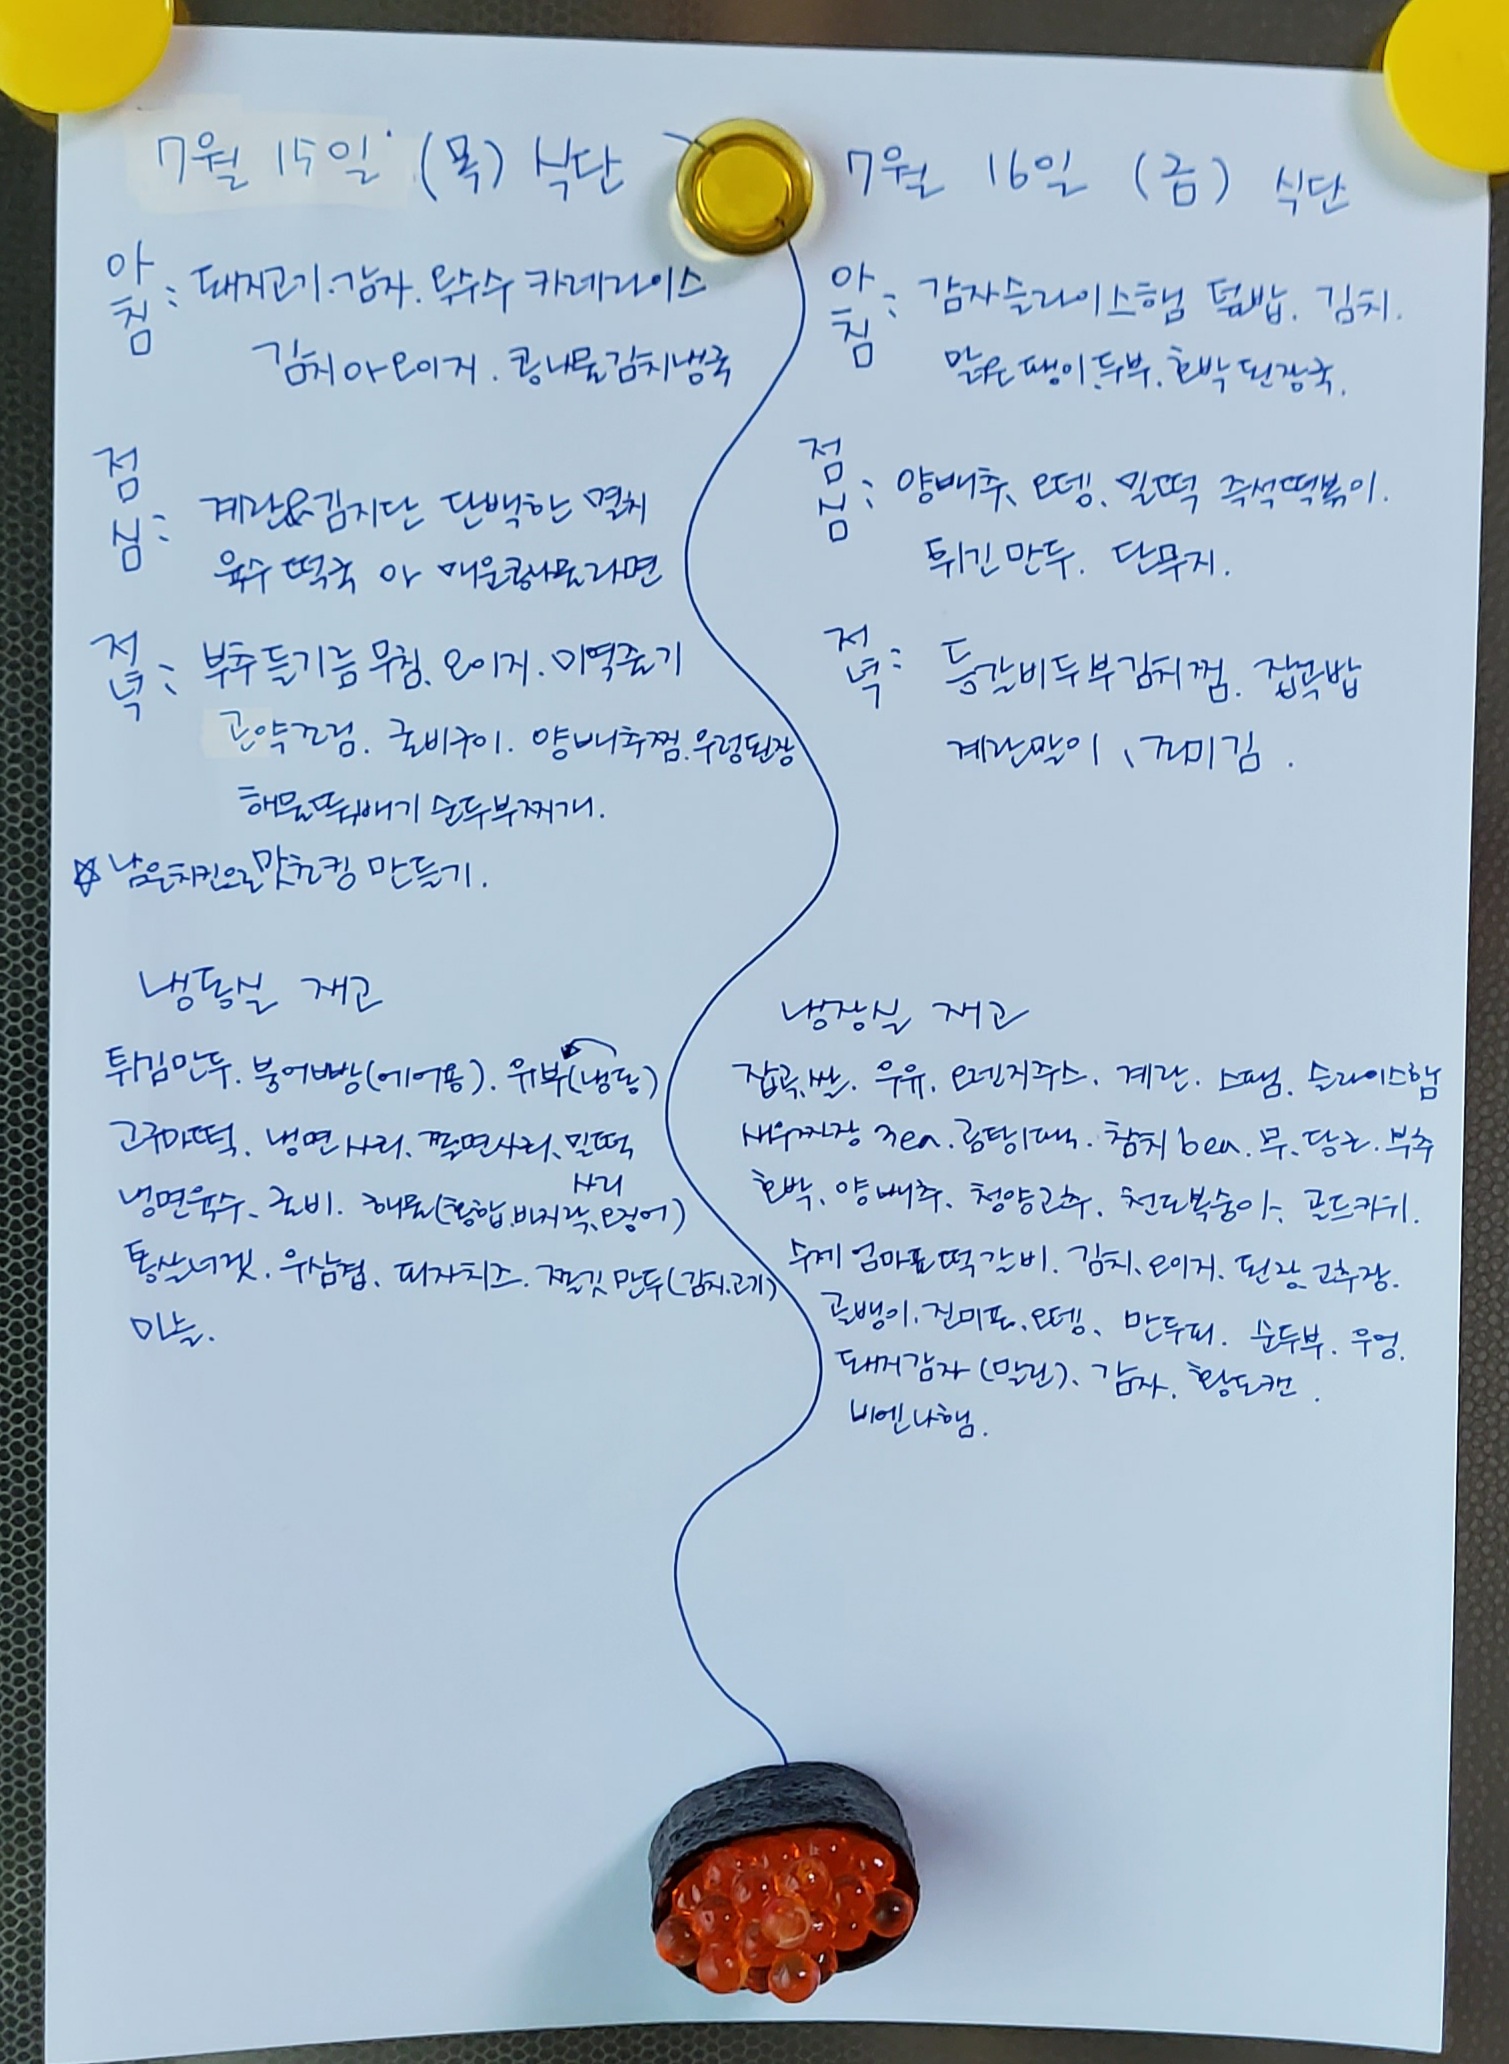 7월 15일 (목) 식단
아침: 돼지고기.감자.옥수수 카레라이스
김치 or 오이지. 콩나물김치냉국
점심: 계란&김지단 담백한 멸치
육수 떡국 or 매운콩나물라면
저녁: 부추들기름무침, 오이지. 미역줄기
곤약조림. 굴비구이. 양배추찜.우렁된장
해물뚝배기 순두부찌개.
☆ 남은치킨으로 맛초킹 만들기.
냉동실 재고
튀김만두. 붕어빵(에어용). 유부(냉동)
고구마떡. 냉면사리. 쫄면사리. 밀떡
사리
냉면육수. 굴비. 해물(홍합.바지락.오징어)
통살너겟. 우삼겹. 피자치즈. 쫄깃만두(김치.고기)
마늘.
7월 16일 (금) 식단
아침: 감자슬라이스햄 덮밥. 김치.
맑은팽이.두부.호박된장국.
점심: 양배추, 오뎅, 밀떡 즉석떡볶이.
튀긴만두. 단무지.
저녁: 등갈비두부김치찜. 잡곡밥
계란말이, 꼬미김.
냉장실 재고
잡곡.쌀. 우유. 오렌지주스. 계란. 스팸. 슬라이스햄
새우짜장 3ea. 곰탕1팩. 참치 6ea. 무. 당근. 부추
호박. 양배추. 청양고추. 천도복숭아. 골드키위.
수제 엄마표떡갈비. 김치. 오이지. 된장.고추장.
골뱅이. 진미포. 오뎅. 만두피. 순두부. 우엉.
돼지감자(말린). 감자. 황도캔.
비엔나햄.